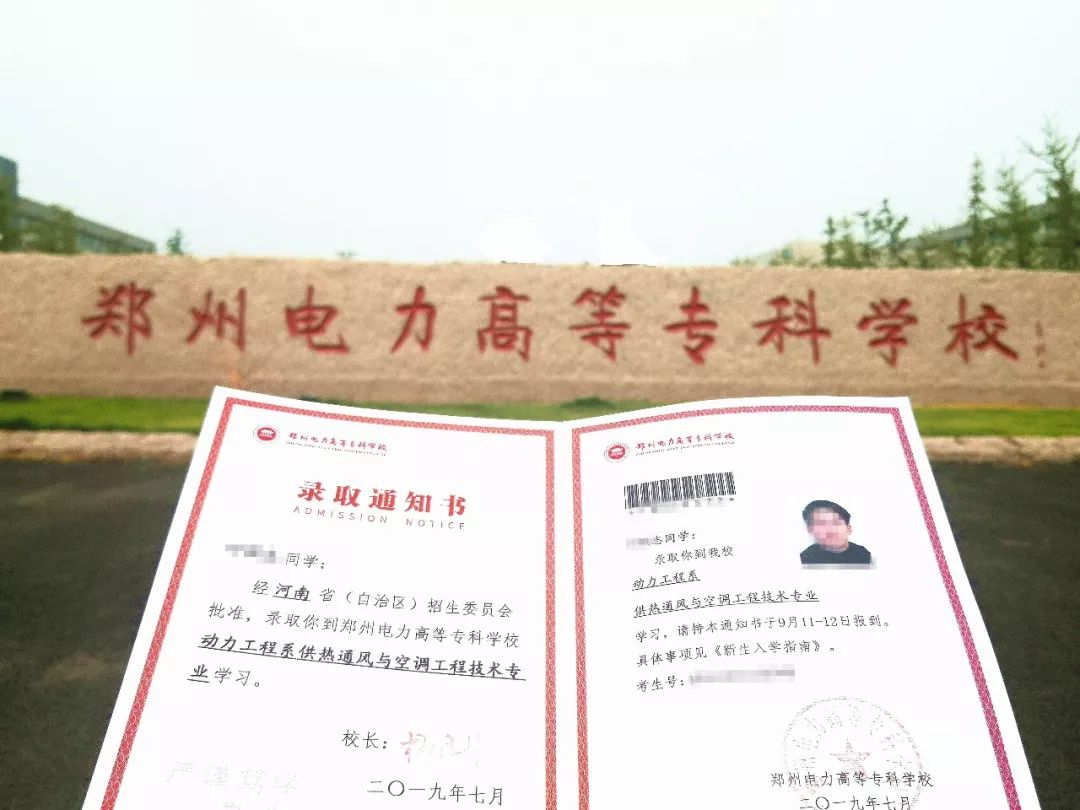 郑州电力高等专科学校
郑州电力高等专科学校
录取通知书
ADMISSION NOTICE
同学：
经 河南 省（自治区）招生委员会
批准，录取你到郑州电力高等专科学校
动力工程系供热通风与空调工程技术专
业学习。
校长：
严谨
二〇一九年七月
郑州电力高等专科学校
志同学：
录取你到我校
动力工程系
供热通风与空调工程技术专业
学习，请持本通知书于9月11-12日报到。
具体事项见《新生入学指南》。
考生号：
郑州电力高等专科学校
二〇一九年七月